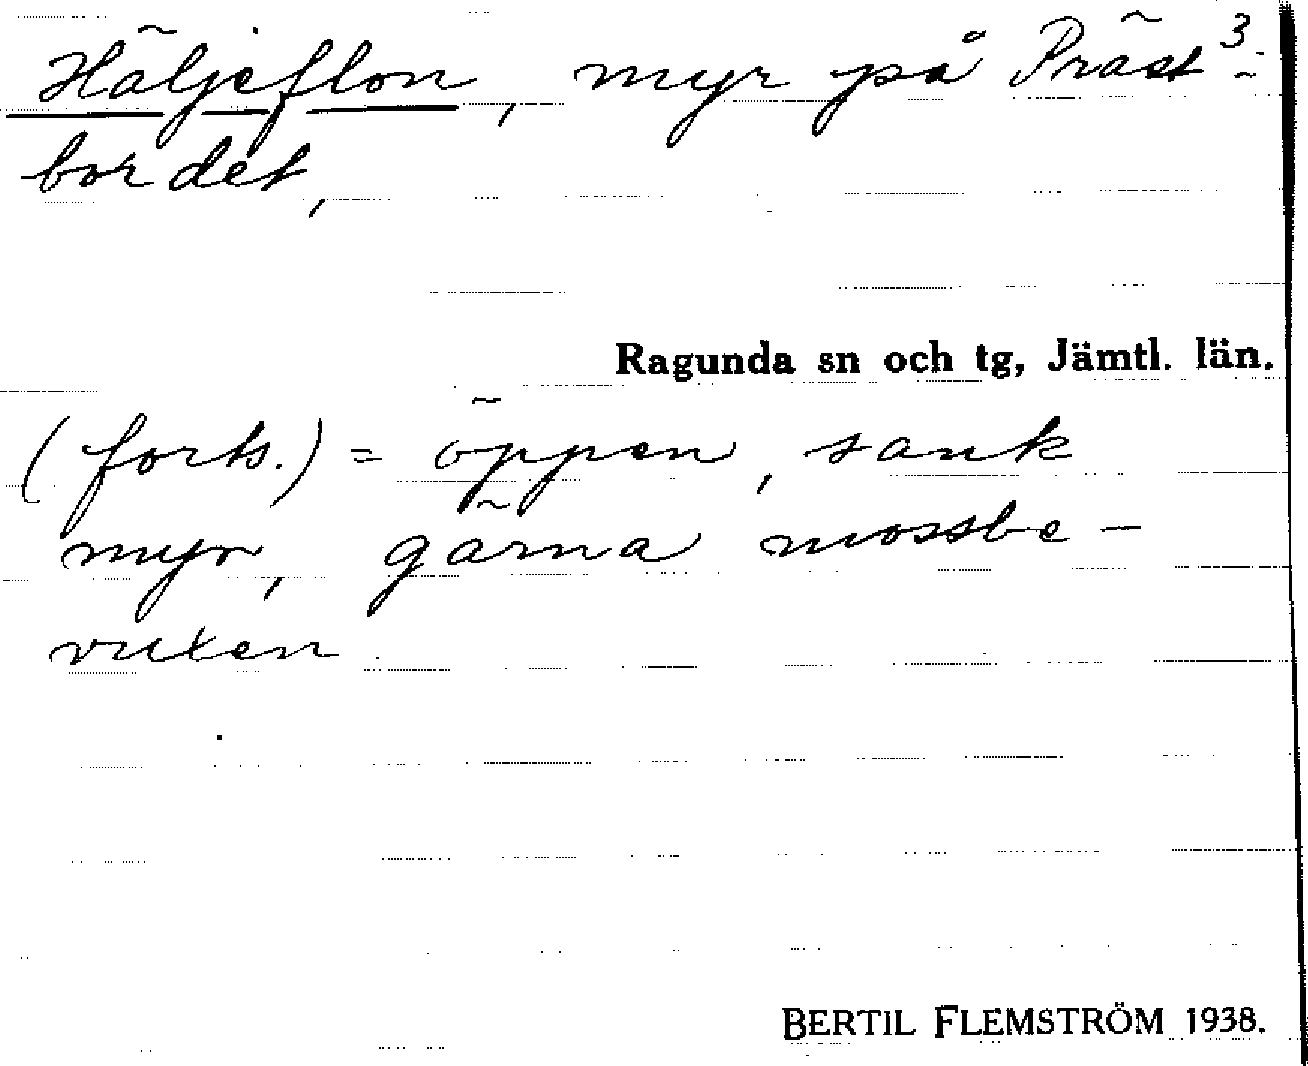 Häljeflon, myr på Präst- 3
bordet,
Ragunda sn och tg, Jämtl. län.
(forts.) = öppen, sank
myr, gärna mossbe-
vuxen.
BERTIL FLEMSTRÖM 1938.